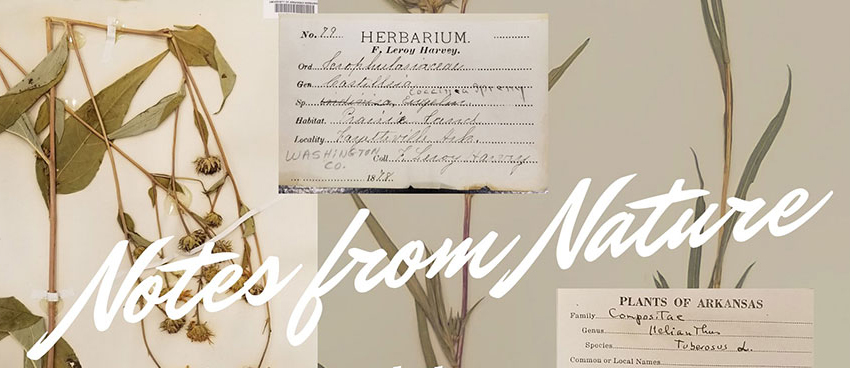 No. 79
HERBARIUM.
F. Leroy Harvey.
Ord Scrophulariaceae
Gen. Castilleja
coccinea
Sp.
Habitat. Prairie Land
Locality Fayetteville Ark.
WASHINGTON CO.
Coll. F Leroy Harvey
1878.
Notes from Nature
PLANTS OF ARKANSAS
Family Compositae
Genus Helianthus
Species Tuberosus L.
Common or Local Names